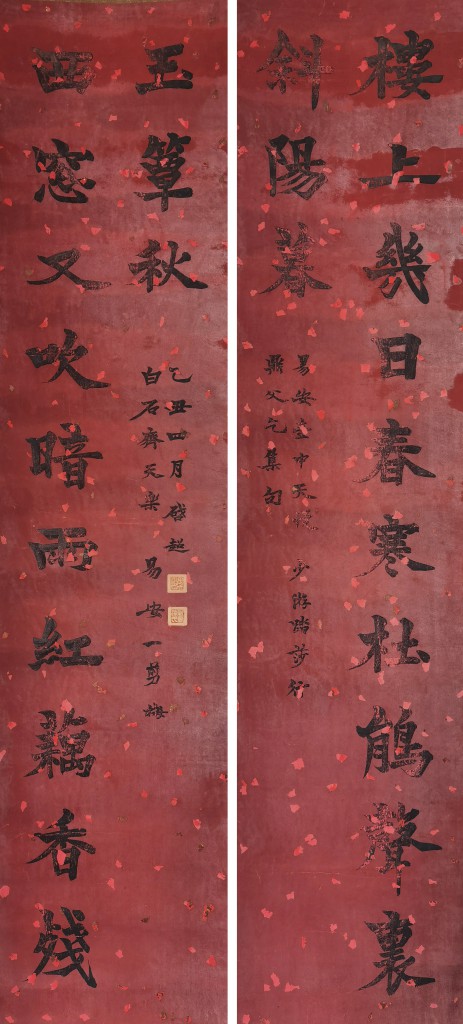 樓上幾日春寒杜鵑聲裏
斜陽暮
易安壺中天慢 少游踏莎行
鼎父乞集句
西窓又吹暗雨紅藕香殘
玉簟秋
白石齊天樂 易安一剪梅
乙丑四月 啓超